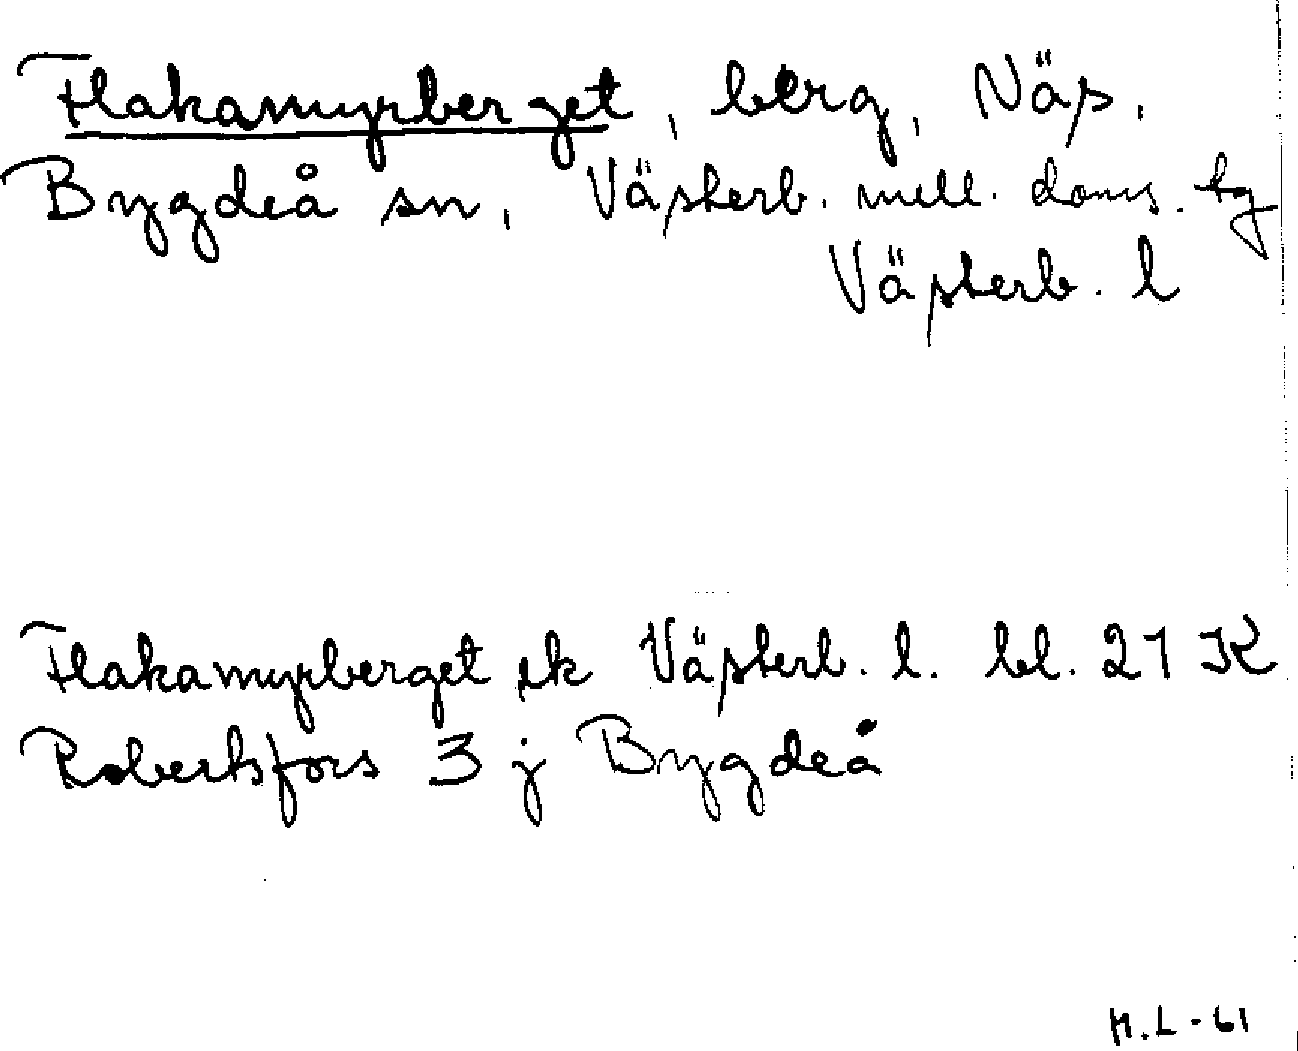 Flakamyrberget, berg, Näs,
Bygdeå sn, Västerb. mell. doms. tg
Västerb. l
Flakamyrberget ek Västerb. l. bl. 21 K
Robertsfors 3 j Bygdeå
M.L - 61